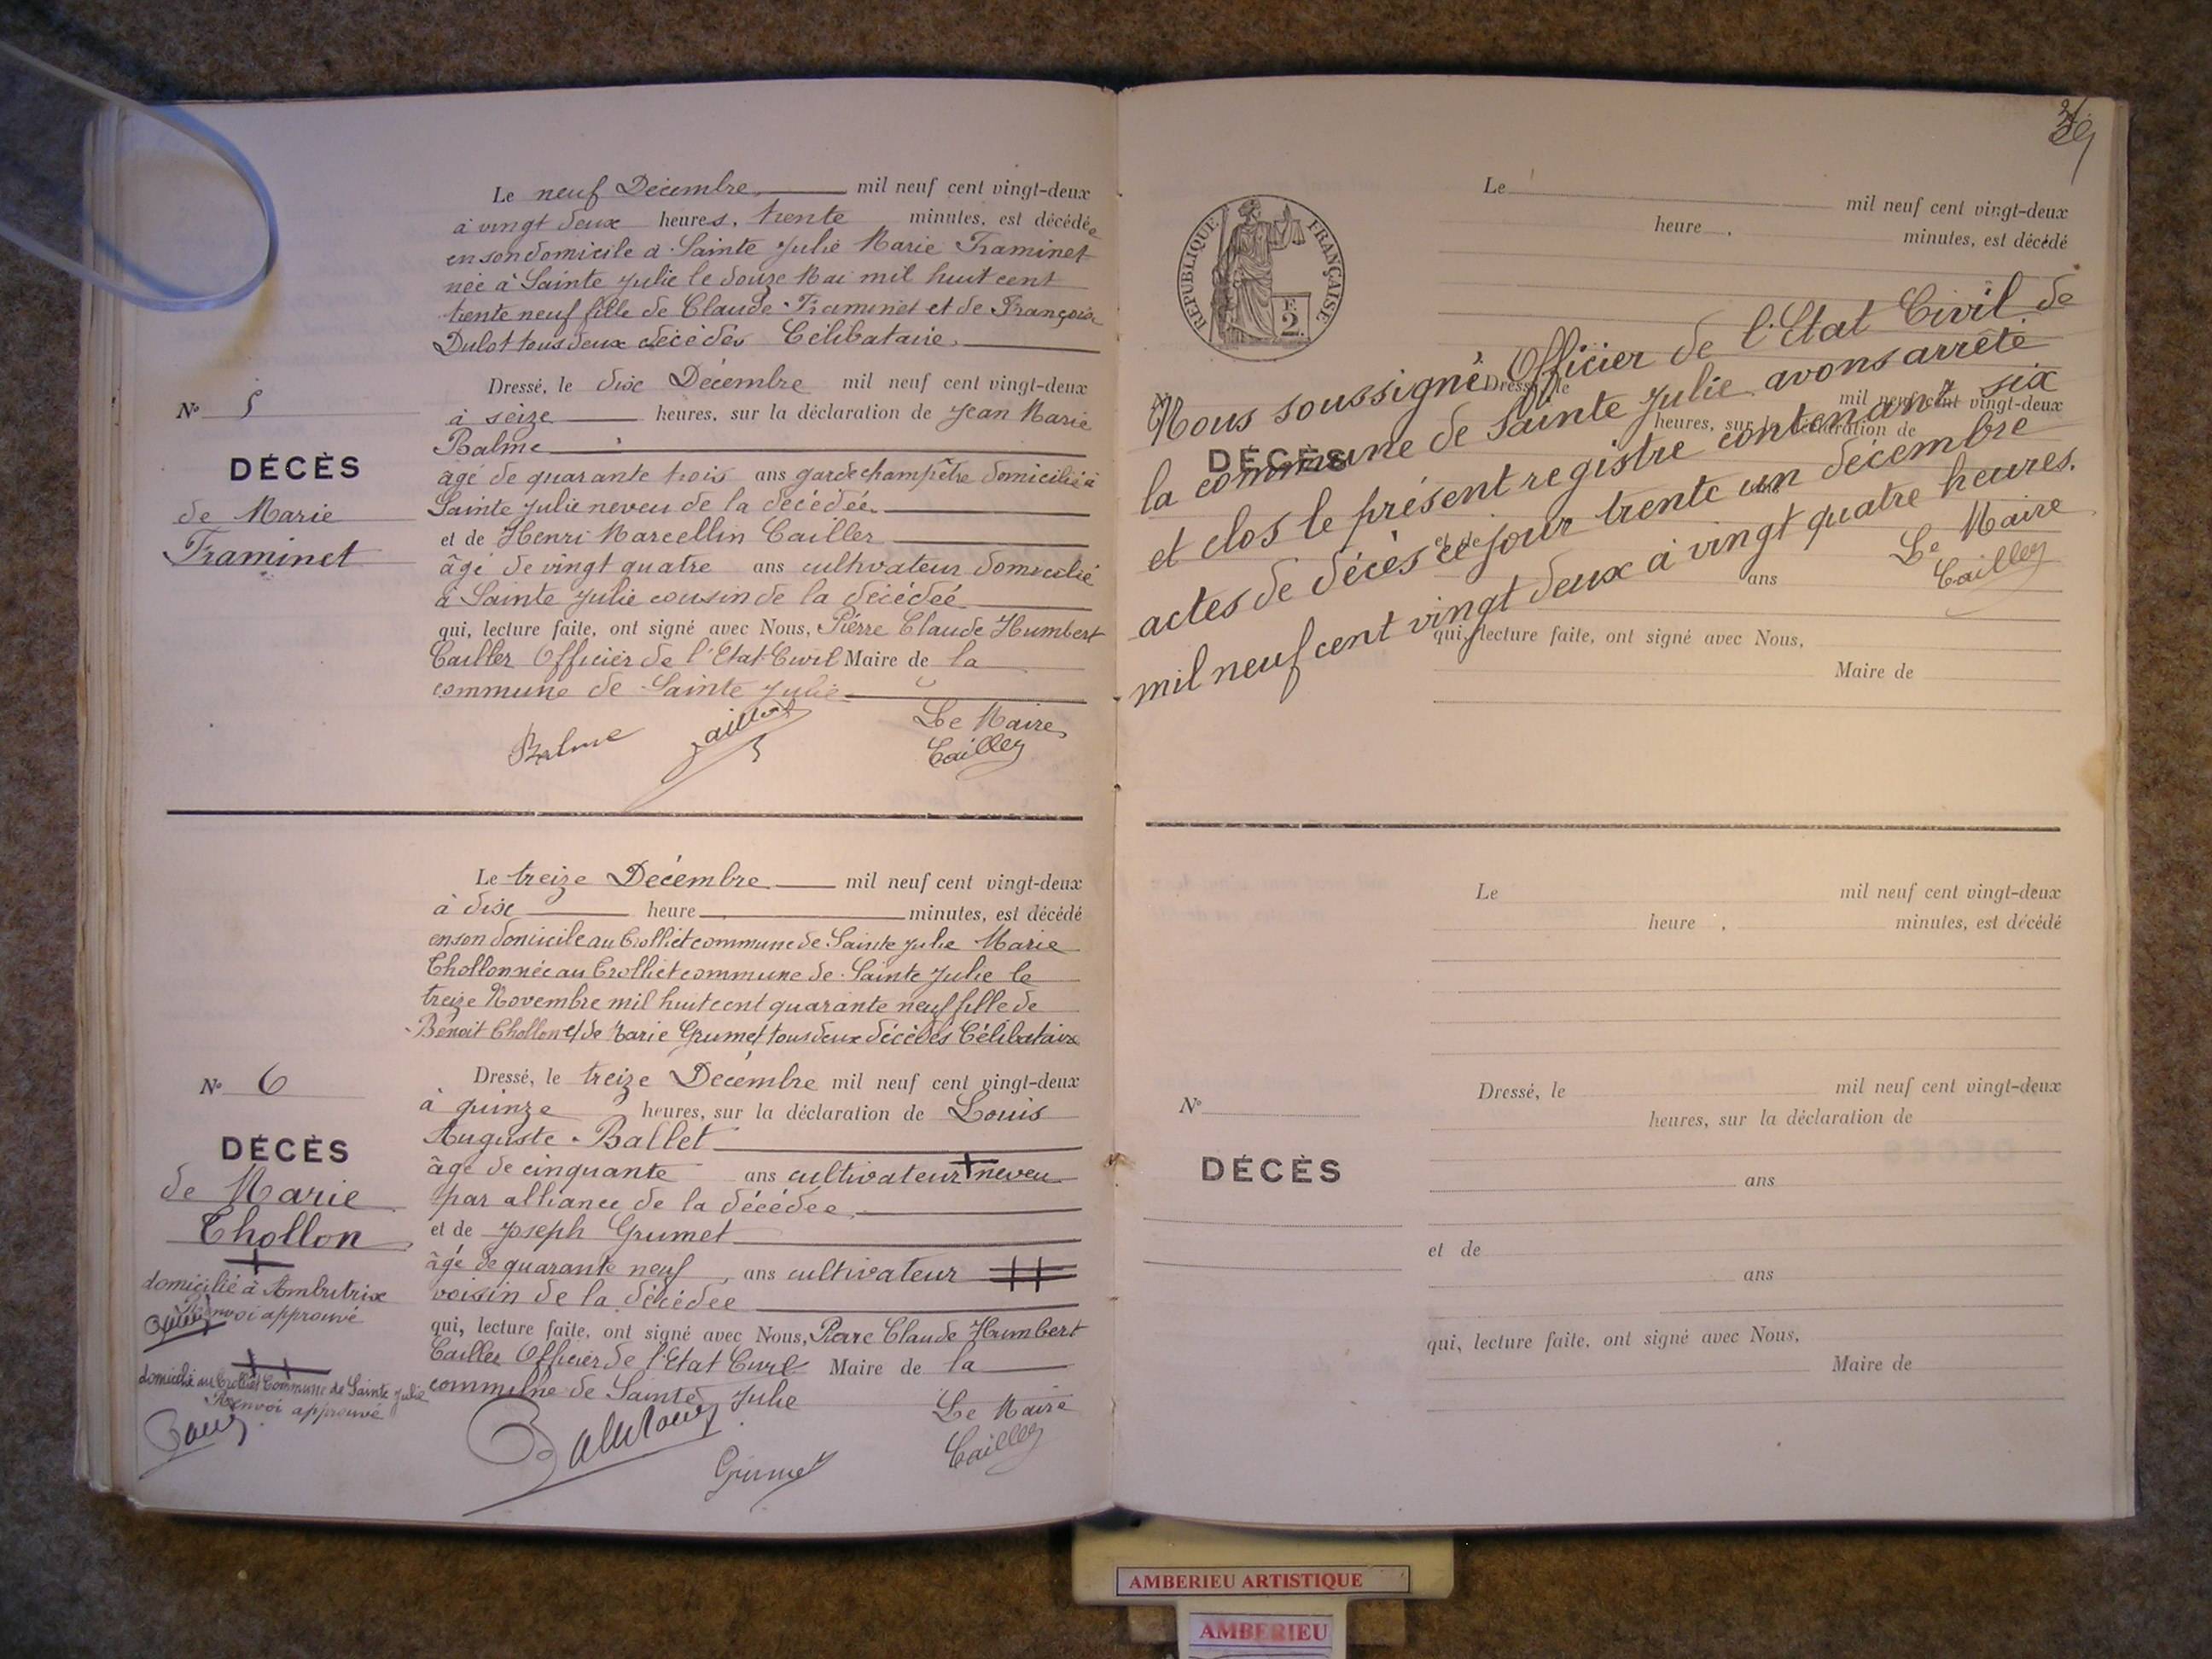 Le neuf Décembre mil neuf cent vingt-deux
à vingt deux heures, trente minutes, est décédée
en son domicile à Sainte Julie Marie Traminet
née à Sainte Julie le douze Mai mil huit cent
trente neuf fille de Claude Traminet et de Françoise
Dulot tous deux décédés Célibataire.
Dressé, le dix Décembre mil neuf cent vingt-deux
à seize heures, sur la déclaration de Jean Marie
Balme
âgé de quarante trois ans garde champêtre domicilié à
Sainte Julie neveu de la décédée
et de Henri Marcellin Cailler
âgé de vingt quatre ans cultivateur domicilié
à Sainte Julie cousin de la décédée
qui, lecture faite, ont signé avec Nous, Pierre Claude Humbert
Cailler Officier de l'Etat-Civil Maire de la
commune de Sainte Julie
Balme Cailler Le Maire
Cailler
No 5
DÉCÈS
de Marie
Traminet
Le treize Décembre mil neuf cent vingt-deux
à dix heure minutes, est décédé
en son domicile au Trolliet commune de Sainte Julie Marie
Chollon née au Trolliet commune de Sainte Julie le
treize Novembre mil huit cent quarante neuf fille de
Benoit Chollon et de Marie Grumet tous deux décédés Célibataire
Dressé, le treize Décembre mil neuf cent vingt-deux
à quinze heures, sur la déclaration de Louis
Auguste Ballet
âgé de cinquante ans cultivateur + neveu
par alliance de la décédée
et de Joseph Grumet
âgé de quarante neuf ans cultivateur ++
voisin de la décédée
qui, lecture faite, ont signé avec Nous, Pierre Claude Humbert
Cailler Officier de l'Etat Civil Maire de la
commune de Sainte Julie
Le Maire
Grumet Cailler
No 6
DÉCÈS
de Marie
Chollon
+
domicilié à Ambutrix
Renvoi approuvé
++
domicilié au Trolliet Commune de Sainte Julie
Renvoi approuvé
RÉPUBLIQUE FRANÇAISE
F.
2.
Le mil neuf cent vingt-deux
heure , minutes, est décédé
Nous soussigné, Officier de l'Etat Civil de
la commune de Sainte Julie avons arrêté
et clos le présent registre contenant six
actes de décès ce jour trente un décembre
mil neuf cent vingt deux à vingt quatre heures.
Le Maire
Cailler
Dressé, le mil neuf cent vingt-deux
heures, sur la déclaration de
DÉCÈS
ans
et de
ans
qui, lecture faite, ont signé avec Nous,
Maire de
Le mil neuf cent vingt-deux
heure , minutes, est décédé
Dressé, le mil neuf cent vingt-deux
No
heures, sur la déclaration de
DÉCÈS
ans
et de
ans
qui, lecture faite, ont signé avec Nous,
Maire de
AMBERIEU ARTISTIQUE
AMBERIEU